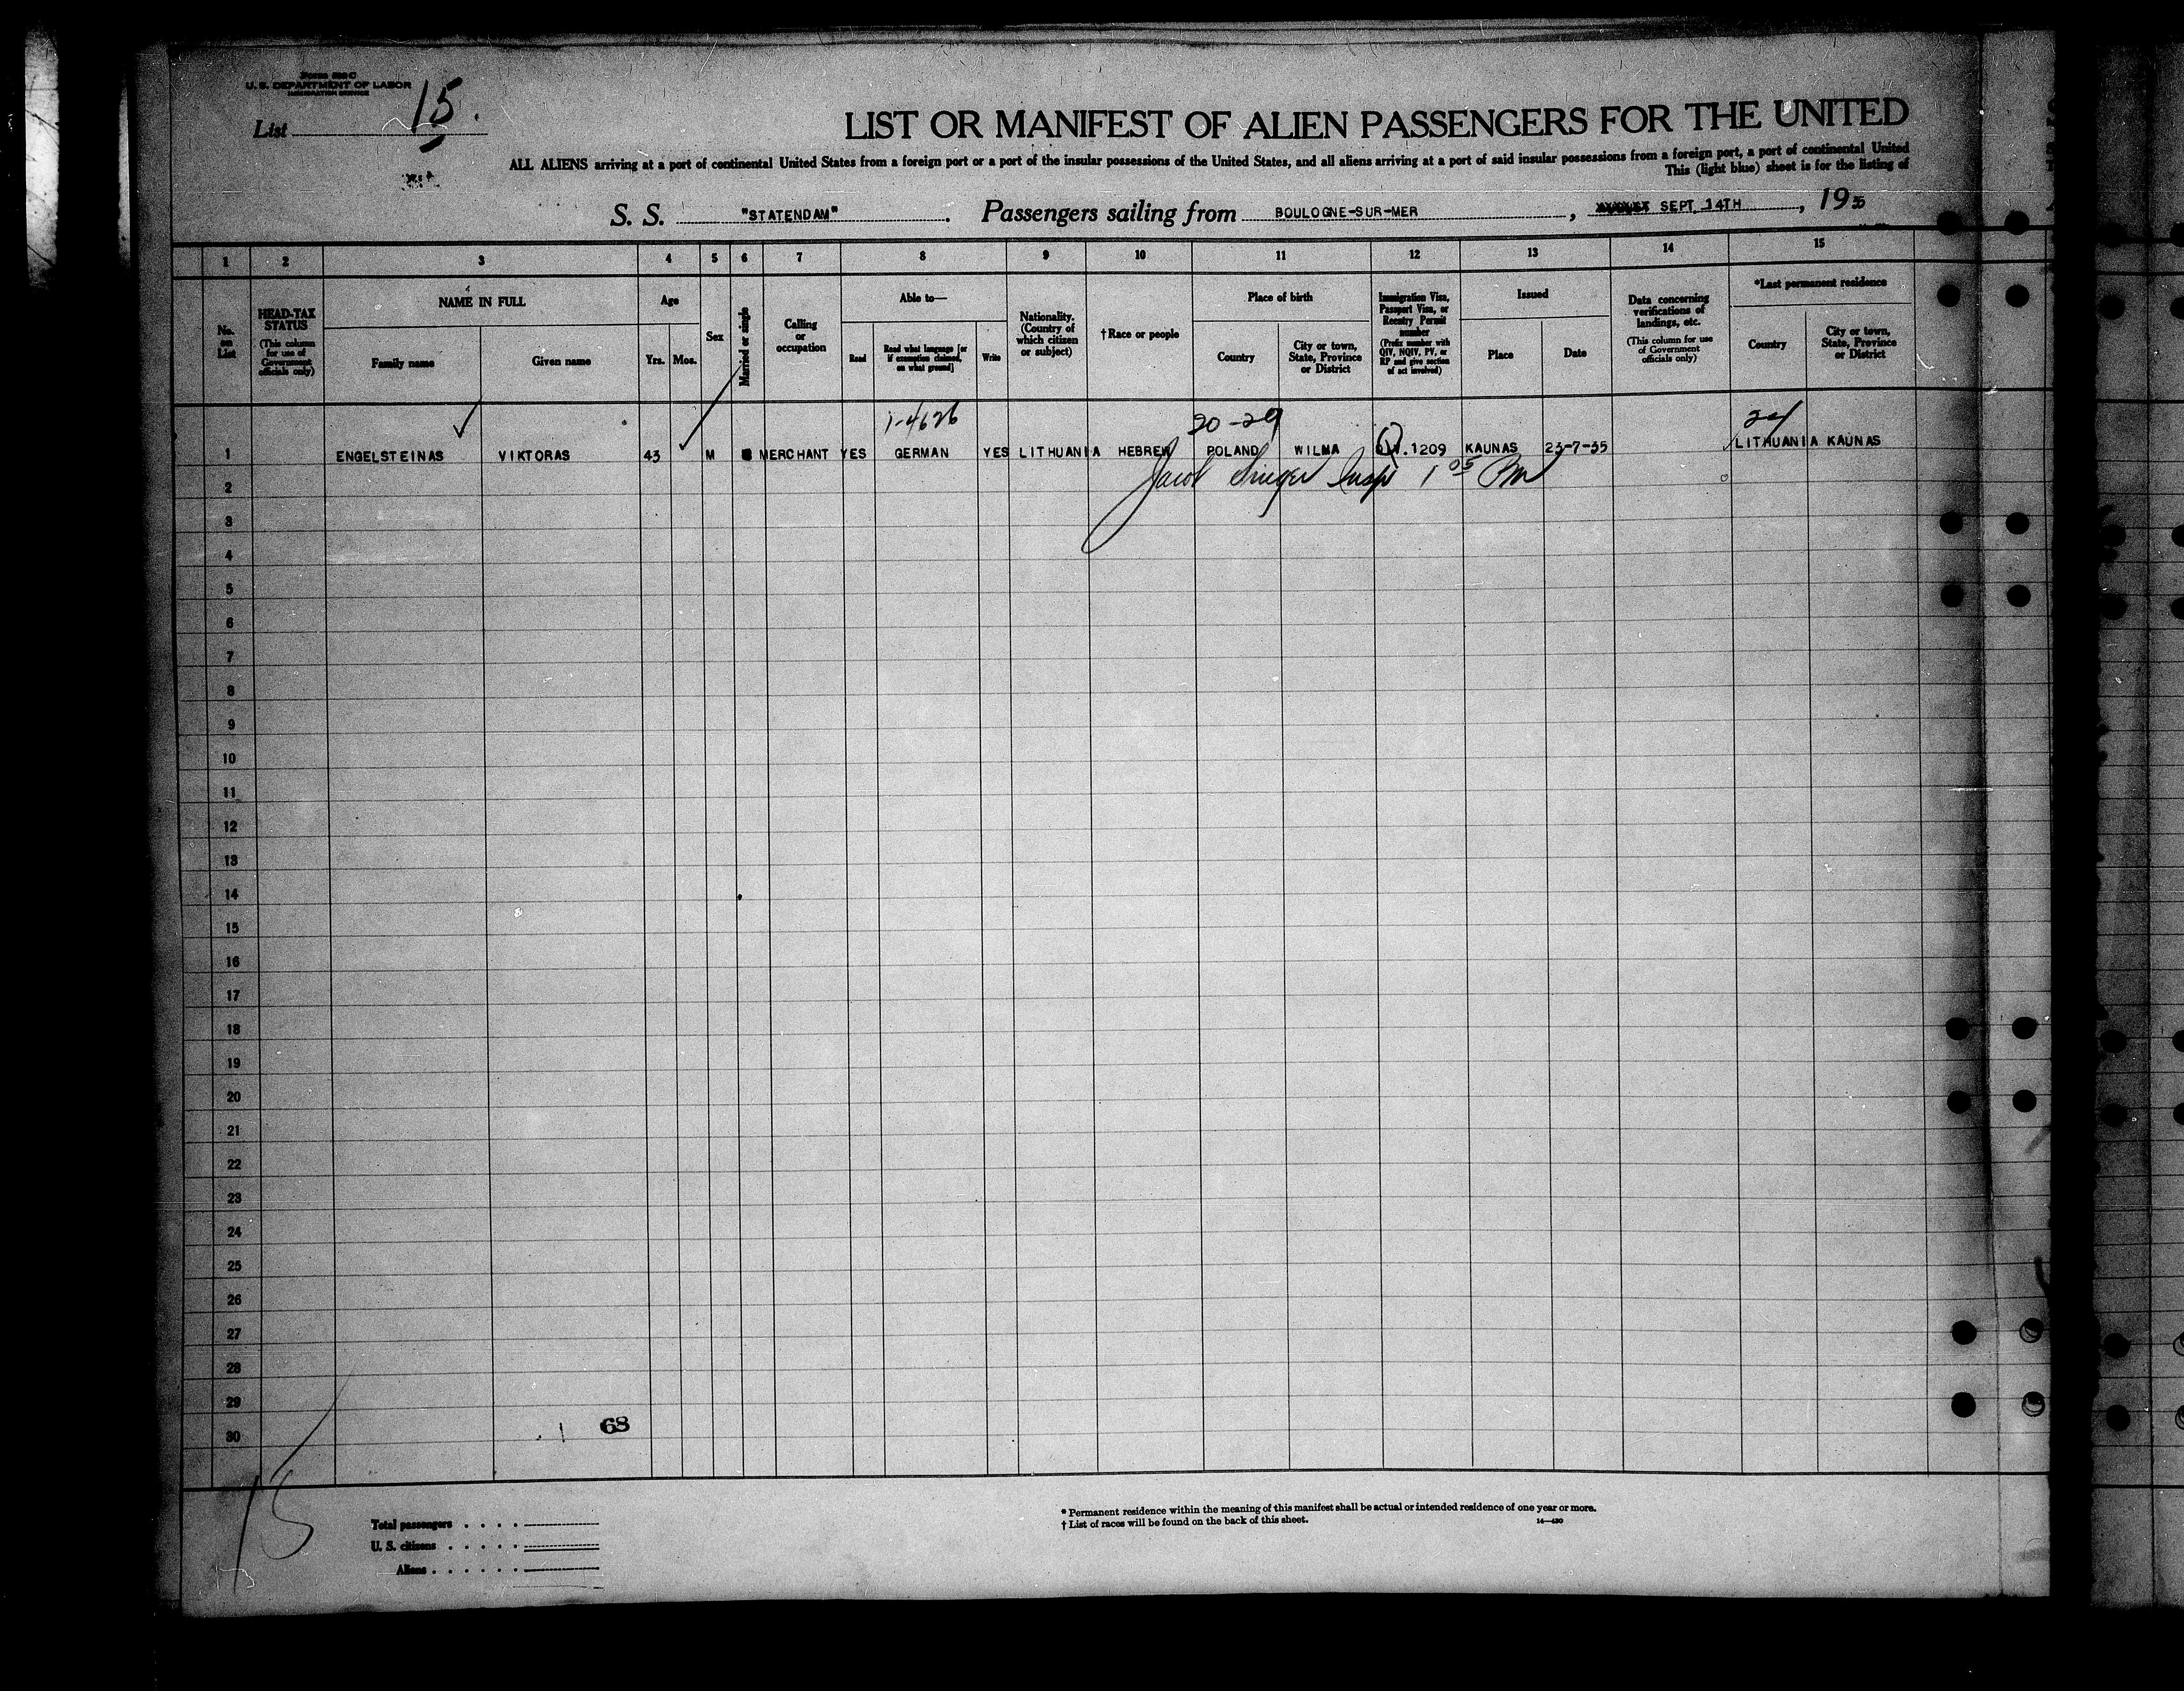 Form 500 C
U. S. DEPARTMENT OF LABOR
IMMIGRATION SERVICE
List 15.
LIST OR MANIFEST OF ALIEN PASSENGERS FOR THE UNITED
ALL ALIENS arriving at a port of continental United States from a foreign port or a port of the insular possessions of the United States, and all aliens arriving at a port of said insular possessions from a foreign port, a port of continental United
This (light blue) sheet is for the listing of
S. S. "STATENDAM". Passengers sailing from BOULOGNE-SUR-MER, SEPT. 14TH, 1935
1 2 3 4 5 6 7 8 9 10 11 12 13 14 15
No. on List
HEAD-TAX STATUS (This column for use of Government officials only)
NAME IN FULL
Family name
Given name
Age
Yrs. Mos.
Sex
Married or single
Calling or occupation
Able to—
Read
Read what language [or if exemption claimed, on what ground]
Write
Nationality. (Country of which citizen or subject)
† Race or people
Place of birth
Country
City or town, State, Province or District
Immigration Visa, Passport Visa, or Reentry Permit number (Prefix number with QIV, NQIV, PV, or RP and give section of act involved)
Issued
Place
Date
Data concerning verifications of landings, etc. (This column for use of Government officials only)
*Last permanent residence
Country
City or town, State, Province or District
1-4626 20-29 24
1 ENGELSTEINAS VIKTORAS 43 M MERCHANT YES GERMAN YES LITHUANIA HEBREW POLAND WILMA 1209 KAUNAS 23-7-35 LITHUANIA KAUNAS
Jacob Insp 1 05 Pm
2
3
4
5
6
7
8
9
10
11
12
13
14
15
16
17
18
19
20
21
22
23
24
25
26
27
28
29
68
30
15
Total passengers
U. S. citizens
Aliens
* Permanent residence within the meaning of this manifest shall be actual or intended residence of one year or more.
† List of races will be found on the back of this sheet.
14—430